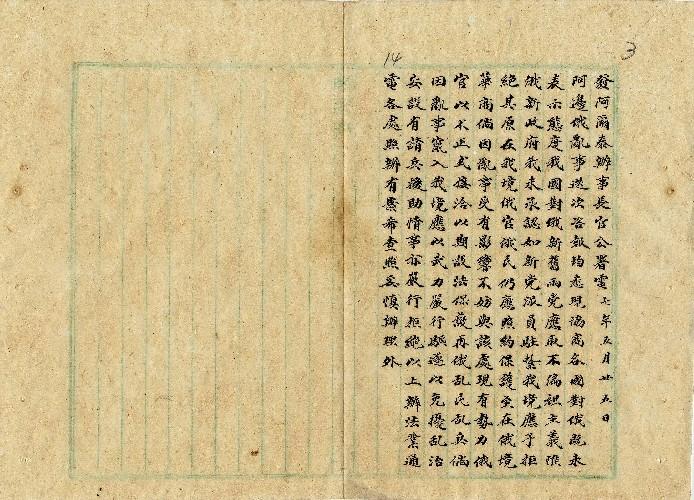 3
14
發阿爾泰辦事長官公署電 七年五月廿五日
阿邊俄亂事迭次咨報均悉現協商各國對俄既未
表示態度我國對俄新舊兩黨應取不偏袒主義惟
俄新政府我未承認如新黨派員駐紮我境應予拒
絕其原在我境俄官俄民仍應照約保護至在俄境
華商倘因亂事受有影響不妨與該處現有勢力俄
官以不正式接洽以期設法保護再俄乱民乱兵倘
因亂事竄入我境應以武力嚴行驅逐以免擾乱治
安設有請兵援助情事亦嚴行拒絕以上辦法業通
電各處照辦有案希查照妥慎辦理外